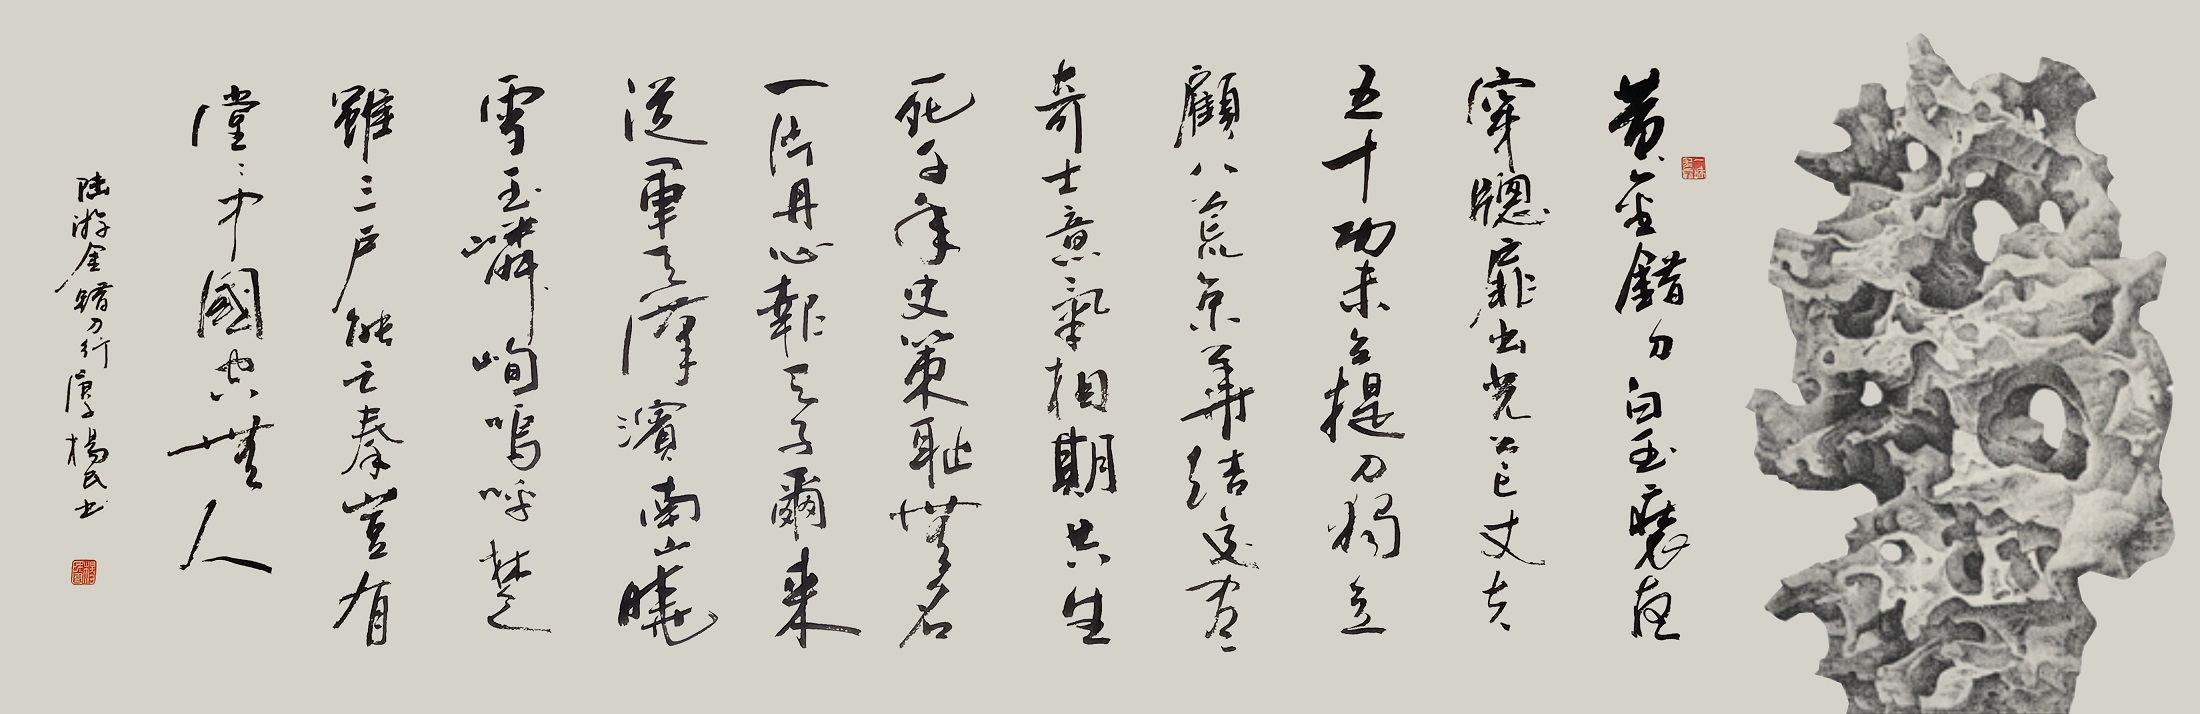 黃金錯刀白玉裝夜
穿牕扉出光芒丈夫
五十功未立提刀獨立
顧八荒京華結交盡
奇士意氣相期共生
死千年史策恥無名
一片丹心報天子爾來
從軍天漢濱南山曉
雪玉嶙峋嗚呼楚
雖三戶能亡秦豈有
堂〻中國空無人
陸游金錯刀行 楊民书